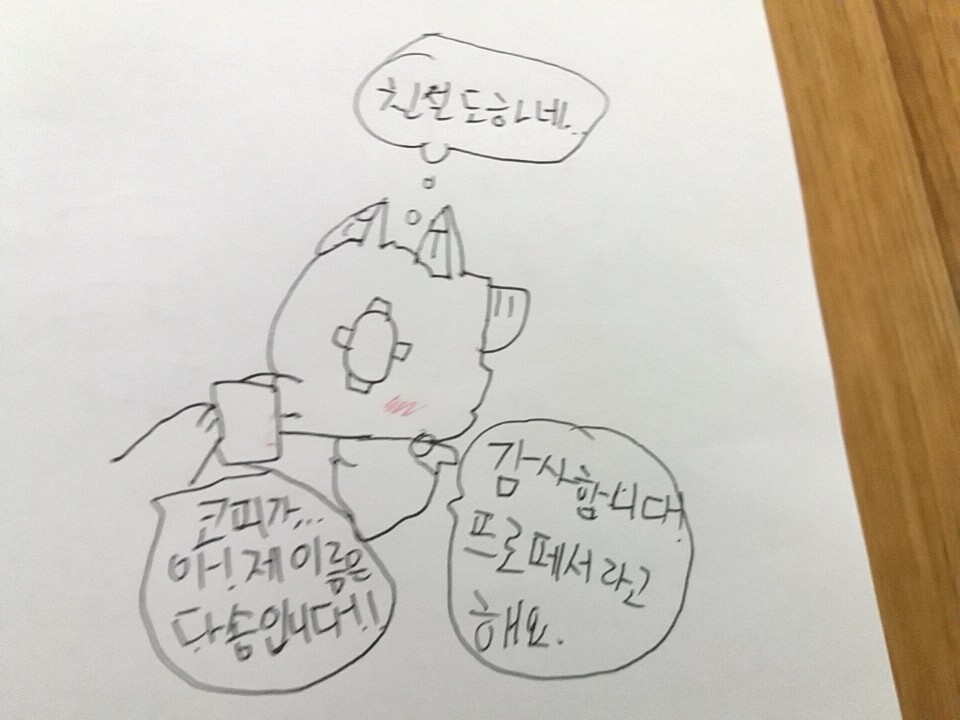 친절도하네..
코피가...
아! 제 이름은
다송입니다!!
감사합니다!
프로페서라고
해요.